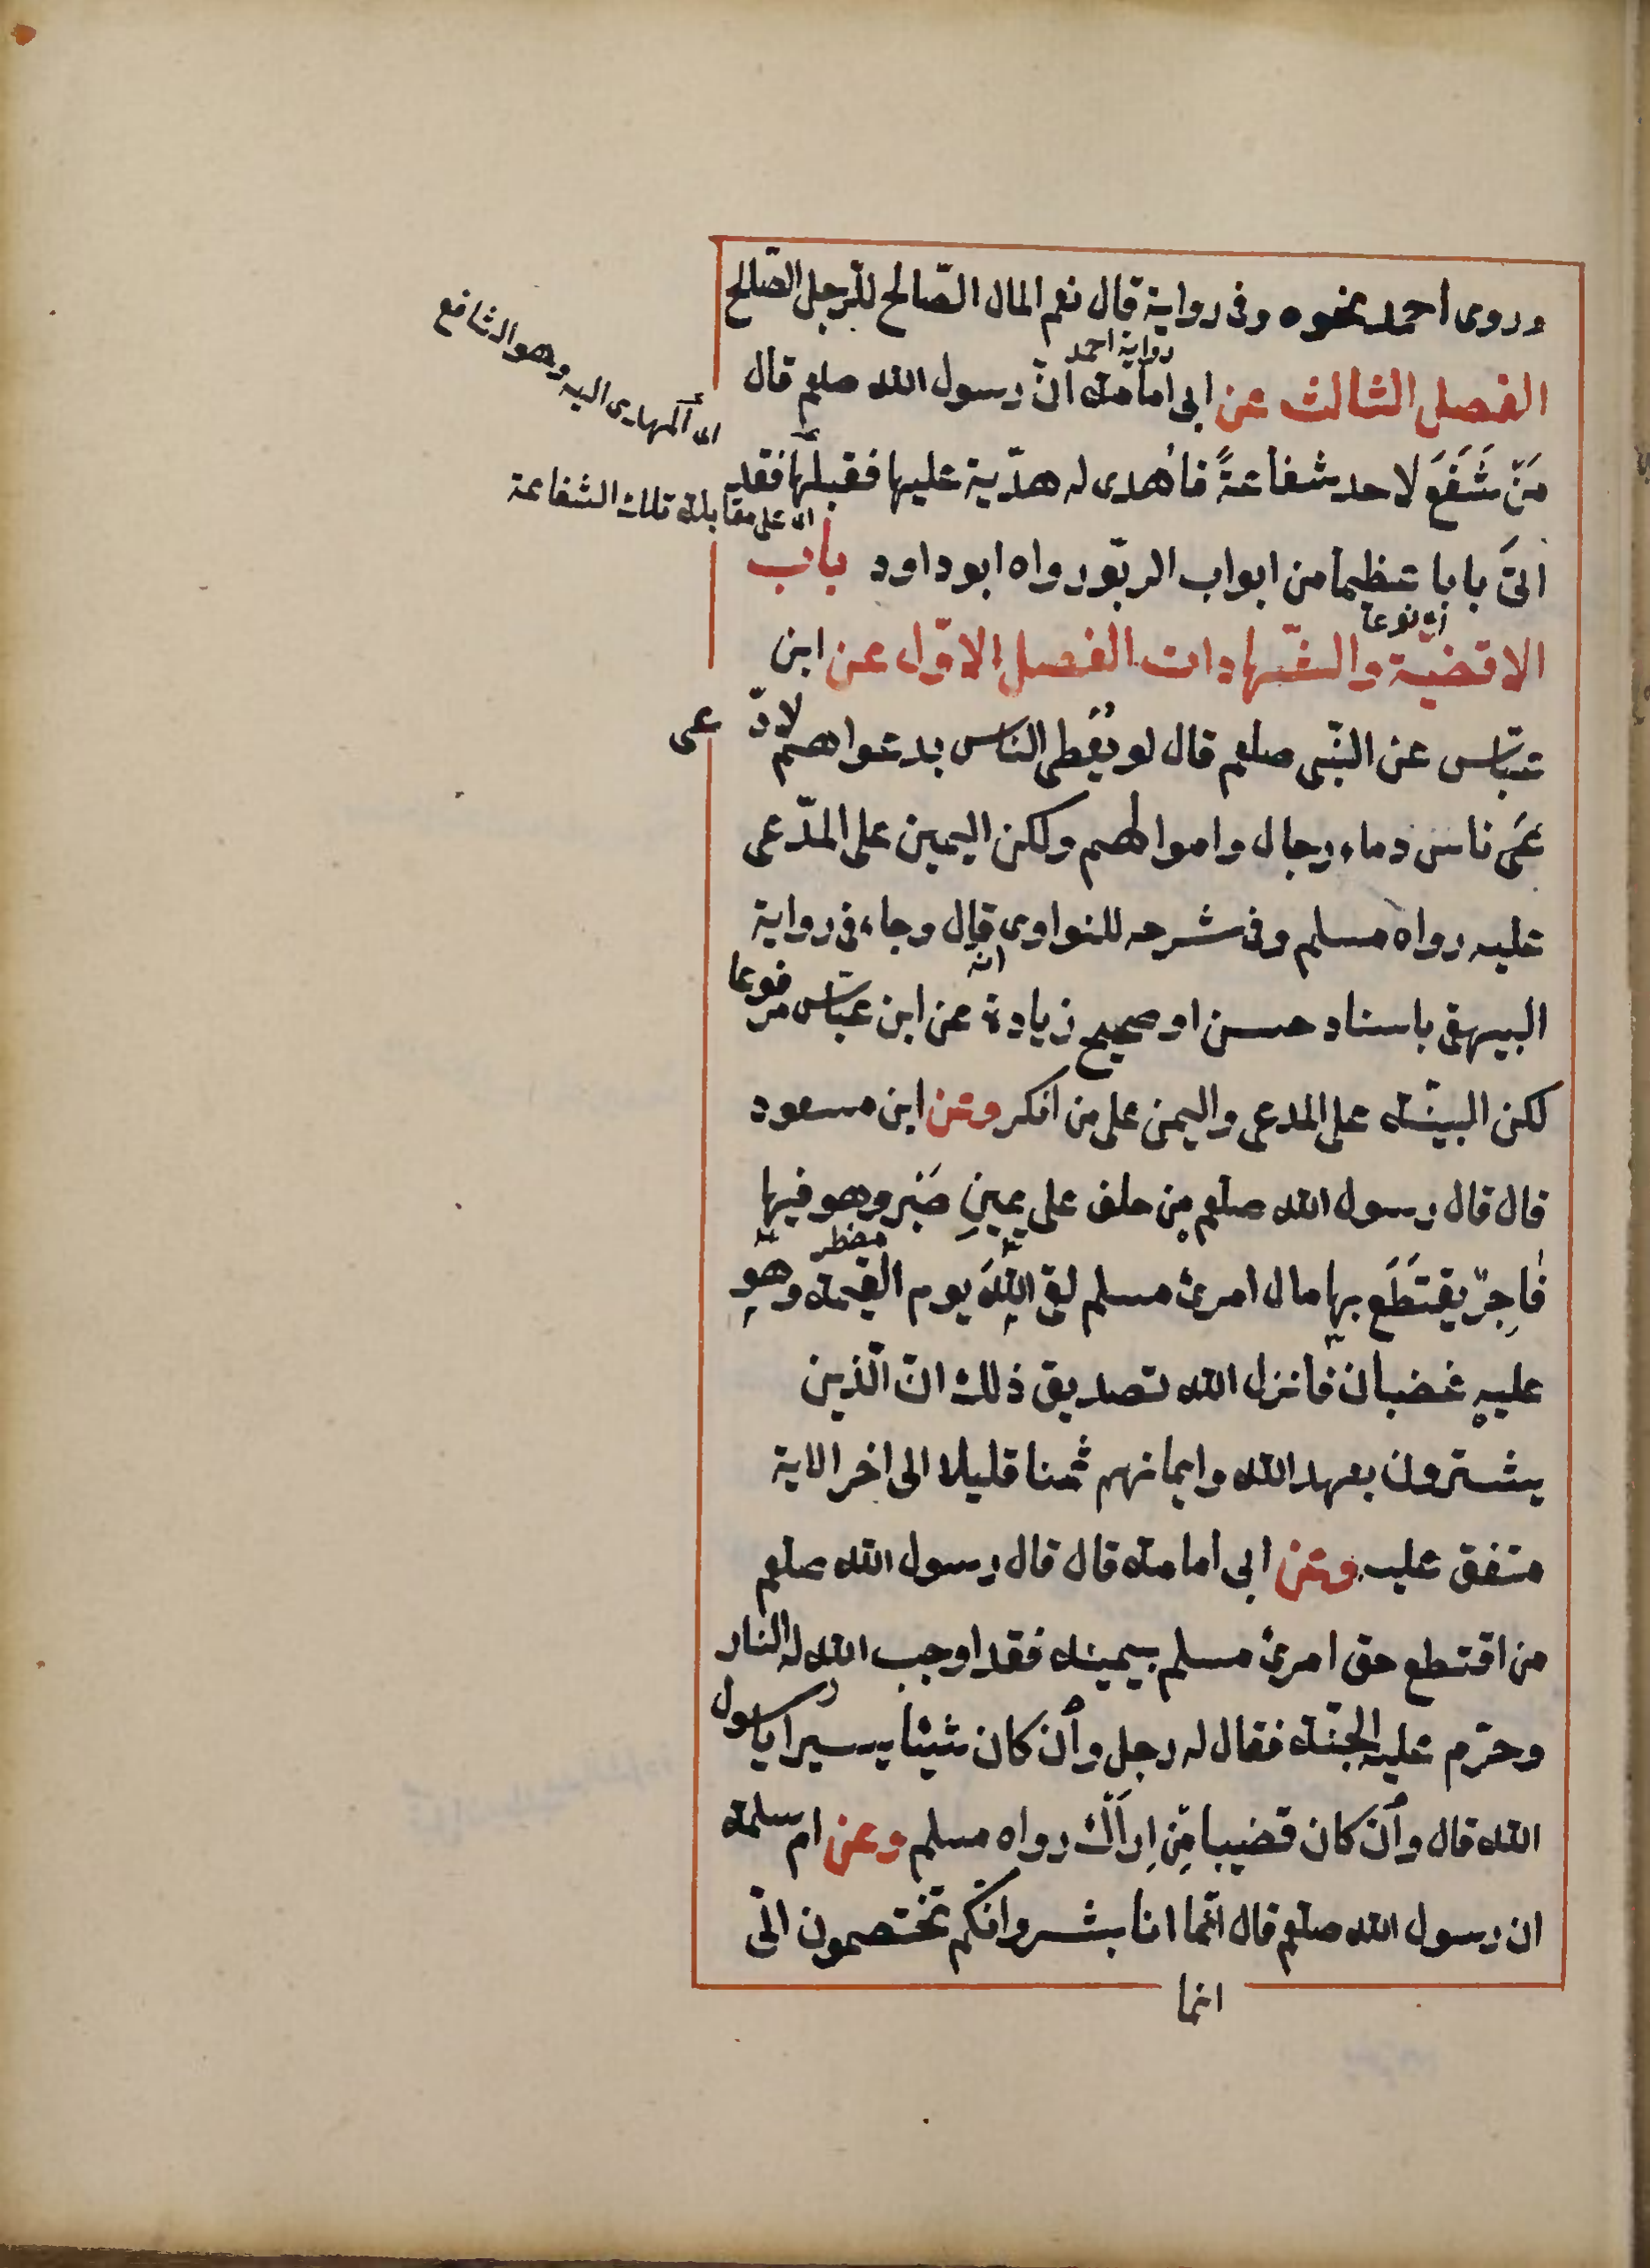 وروى احمد نحوه وفى رواية قال نعم المال الصّالح للرّجل الصّالح
رواية احمد
الفصل الثالث عن ابى امامة انّ رسول الله صلعم قال
اى المهدى اليه وهو الشافع
مَنْ شَفَعَ لاحد شفاعةً فاُهدى له هدّية عليها فقبلها فقد
اى على مقابلة تلك الشفاعة
اتىَ بابا عظيما من ابواب الربوّ رواه ابو داود باب
اى نوعا
الاقضيّة والشّهادات الفصل الاوّل عن ابن
عبّاس عن النّبى صلعم قال لو يُعْطى الناس بدعواهم لادّ
عى
عَى ناس دماء رجال واموالهم ولكن اليمين على المدّعى
عليه رواه مسلم وفى شرحه للنواوى انه قال وجاء فى رواية
البيهقى باسناد حسن او صحيح زيادة عن ابن عبّاس مرفوعا
لكن البيّنة على المدعى واليمن على من انكر وعن ابن مسعود
قال قال رسول الله صلعم من حلف على يمينِ صَبْر وهو فيها
فاجِرٌ يقتَطَع بها مال امرئ مسلم لقى اللهَ يوم القيمة وهو
عليه غضبان فانزل الله تصديق ذلك انّ الّذين
يشترون بعهد الله وايمانهم ثمنا قليلا الى اخر الاية
متفق عليه وعن ابى امامة قال قال رسول الله صلعم
من اقتطع حق امرئ مسلم بيمينه فقد اوجب الله له النار
وحرّم عليه الجنّة فقال له رجل وأن كان شيئا يسيرا يا رسول
الله قال وأن كان قضيبا مِّن اِراك رواه مسلم وعن ام سلمة
ان رسول الله صلعم قال انّما انا بشر وانكم تختصمون الىّ
انما